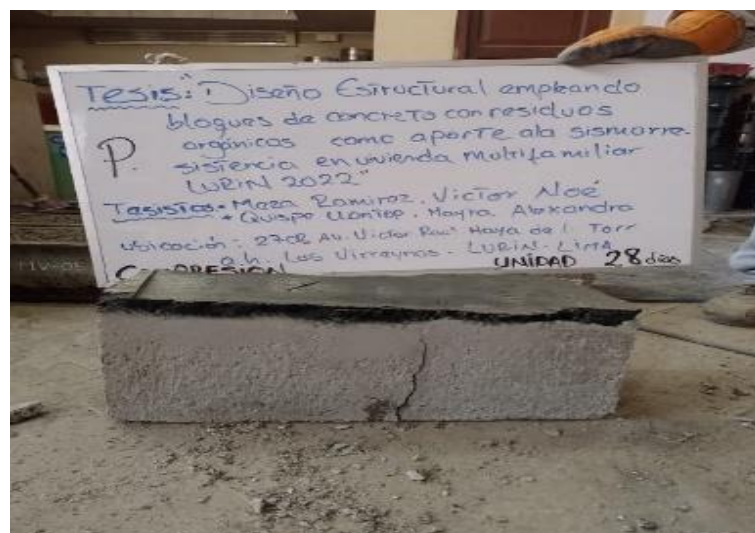 Tesis: "Diseño Estructural empleando
bloques de concreto con residuos
P. orgánicos como aporte ala sismorre-
sistencia en vivienda multifamiliar
LURIN 2022"
Tesistas • Meza Ramirez, Victor Noé
• Quispe Llontop, Mayra Alexandra
Ubicación: Av. Victor Raul Haya de l. Torr
a.h. Los Virreynos - LURIN - LIMA
UNIDAD 28 dias